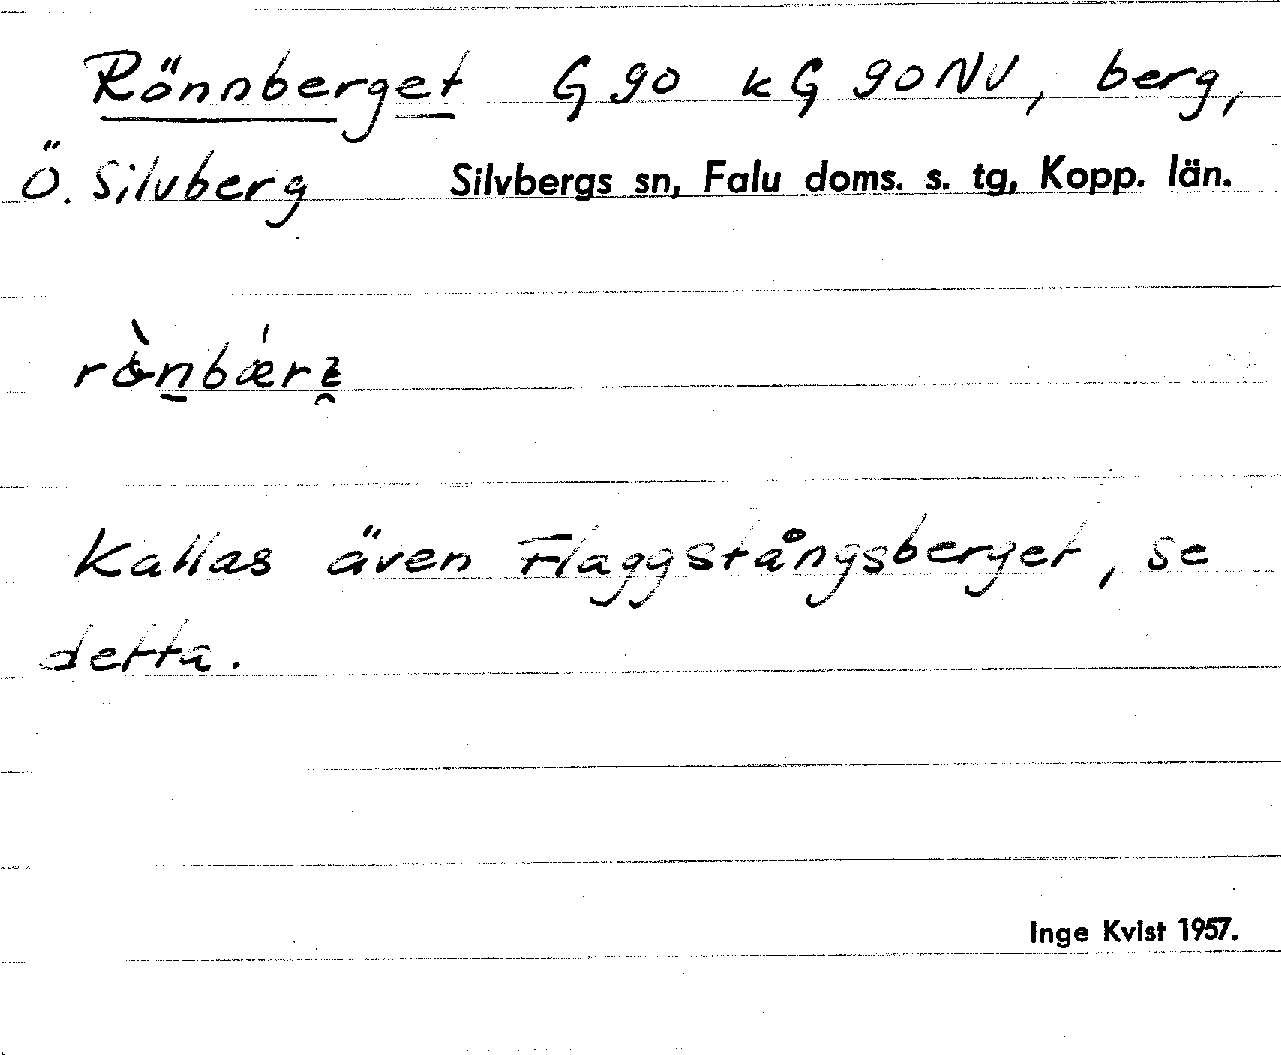 Rönnberget G 90 k G 90 NV, berg,
Ö. Silvberg Silvbergs sn, Falu doms. s. tg, Kopp. län.
Kallas även Flaggstångsberget, se
detta.
Inge Kvist 1957.